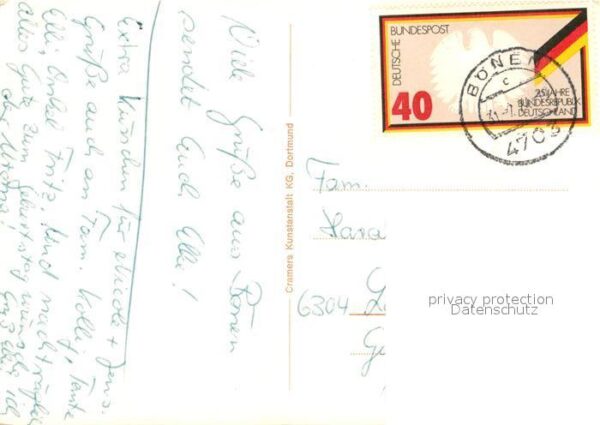 Viele Grüße aus Bönen
sendet Euch Elli!
Extra Küßchen für + Jens.
Grüße auch an Fam. Kolli, Tante
Elli, Onkel Fritz. Und nachträglich
alles Gute zum Geburtstag wünsche ich
Cramers Kunstanstalt KG. Dortmund
DEUTSCHE BUNDESPOST
40
25 JAHRE
BUNDESREPUBLIK
DEUTSCHLAND
BÖNEN
c
4703
Fam.
6304
privacy protection
Datenschutz